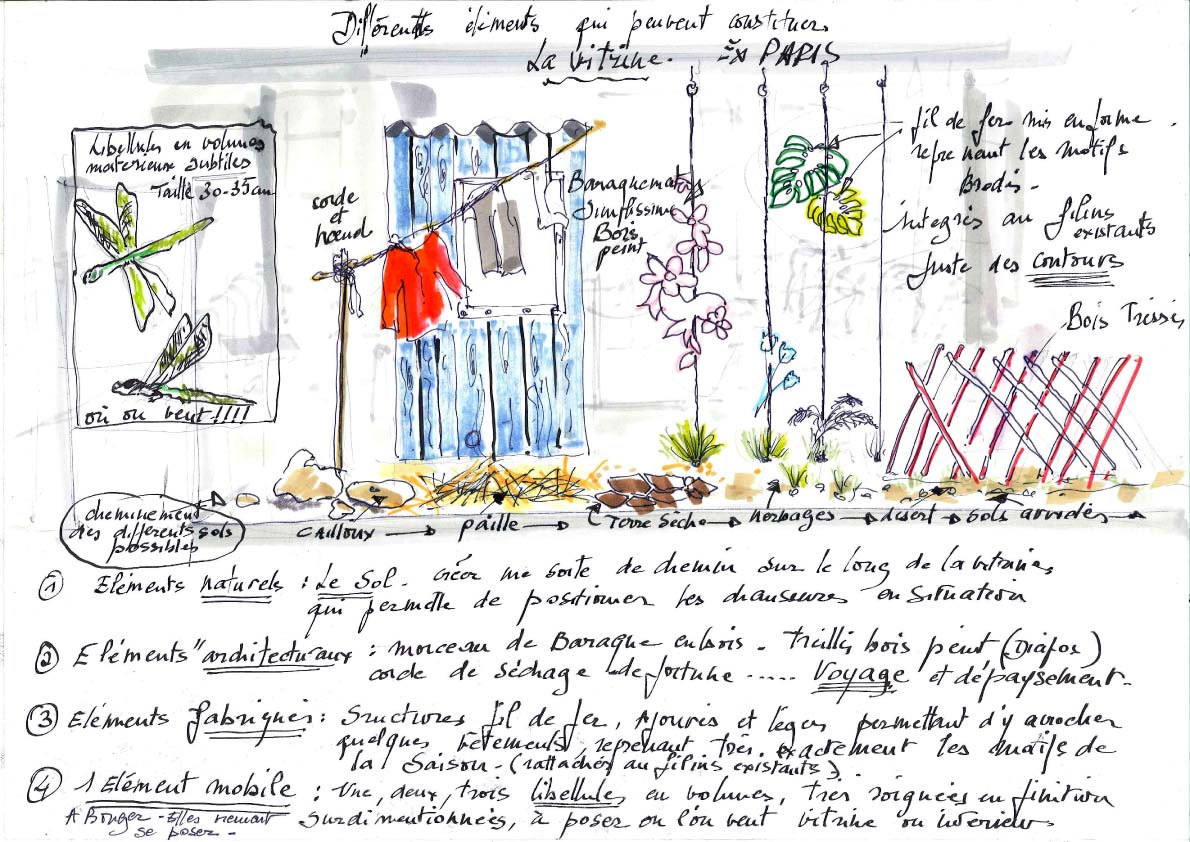 Différents éléments qui peuvent constituer
La vitrine. Ex PARIS
Libellules en volumes
matérieuse subtiles
Taille 30-35 cm
où on veut !!!!
corde
et
nœud
Baraquements
Simplissime
Bois
peint
fil de fer mis en forme
reprenant les motifs
Brodés -
intégrés au filins
existants
Juste des contours
Bois Tressés
cheminement
des différents sols
possibles
cailloux
paille
Terre Sèche
herbages
désert
sols arridés
1 Eléments naturels : Le Sol - créer une sorte de chemin sur le long de la vitrines
qui permette de positionner les chaussures en Situation
2 Eléments "architecturaux : morceau de Baraque en bois - treillis bois peint (Diapos)
corde de séchage de fortune ..... Voyage et dépaysement -
3 Eléments fabriqués : Structures fil de fer, Ajourés et légers permettant d'y accrocher
quelques vêtements, reprenant très exactement les motifs de
la Saison - (rattachés au filins existants)
4 1 Elément mobile : Une, deux, trois libellules en volumes, très soignées en finition
A Bouger - Elles viennent
se poser -
Surdimentionnées, à poser où l'on veut vitrine ou intérieur